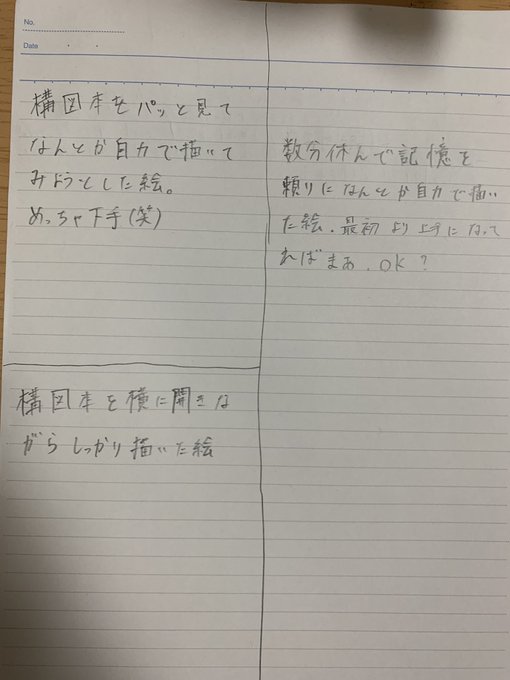 No.
Date
構図本をパッと見て
なんとか自力で描いて
みようとした絵。
めっちゃ下手(笑)
構図本を横に開きな
がらしっかり描いた絵
数分休んで記憶を
頼りになんとか自力で描い
た絵．最初より上手になって
ればまあ．OK？